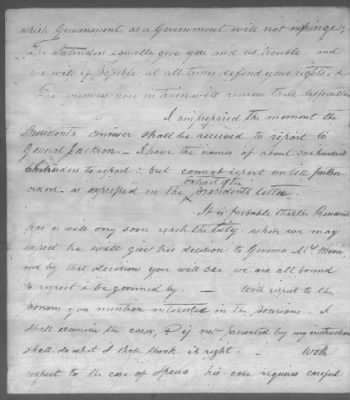 which Government as a Government will not infringe;
The intruders equally give you and us trouble and
we will if possible at all times defend your rights, &
The measures now in train will remove these difficulties
I am prepared the moment the
Presidents answer shall be received to report to
General Jackson — I have the names of about one hundred
intruders to report; but cannot report until further
orders — as expressed in the
extract of the
Presidents letter.
It is probable that the President
has or will very soon reach the City, when we may
he will give his decision to
and by that decision you will see we are all bound
to respect & be governed by. — With respect to the
persons you mention interested in the I
shall examine the cases, & if not prevented by my instructions
shall do what I shall think is right. — With
respect to the case of Spears his case requires careful